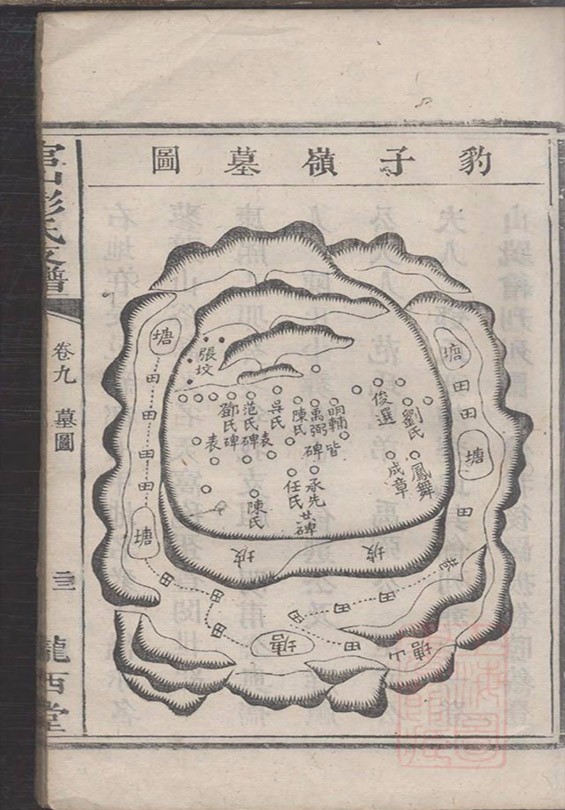 豹子嶺墓圖
卷九
墓圖
張坟
塘
塘
塘
塘
塘
田
田
田
田
田
田
田
田
田
田
田
田
俊選
劉氏
鳳舞
成章
明輔皆
禹弼碑
陳氏
吳氏
范氏碑
鄧氏碑
表
表
承先
任氏
陳氏
坡
坡
隴西堂